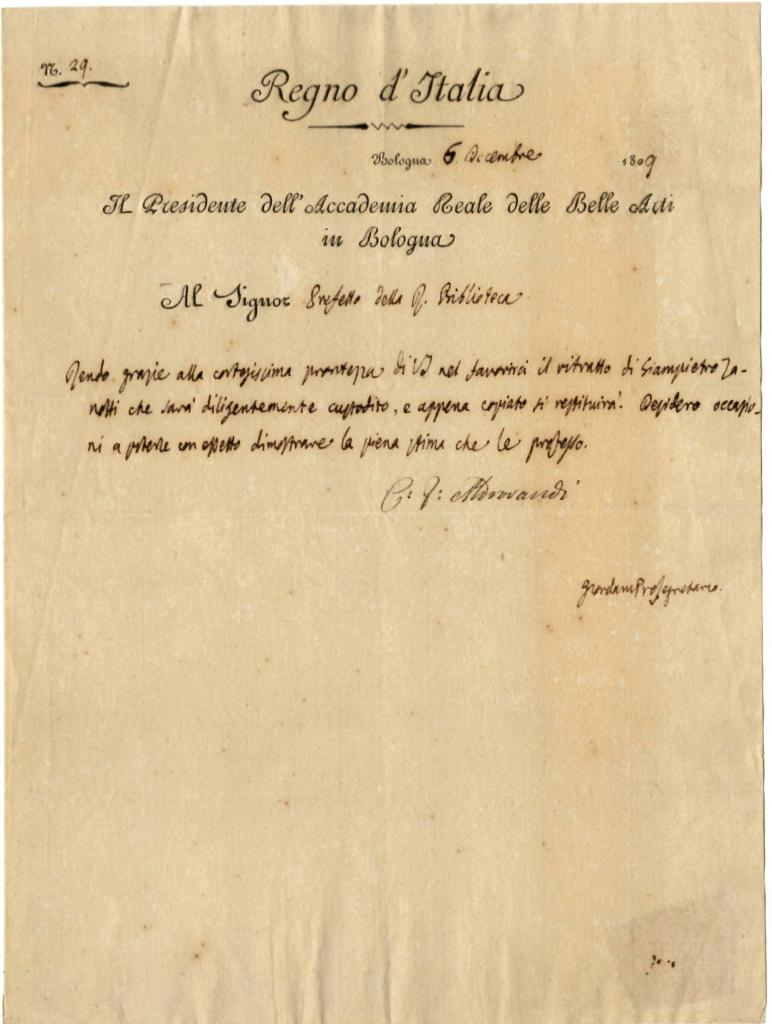 N. 29.
Regno d'Italia
Bologna 6. Decembre 1809
Il Presidente dell'Accademia Reale delle Belle Arti
in Bologna
Al Signor Prefetto della R. Biblioteca
Rendo grazie alla cortesissima prontezza di VS nel favorirci il ritratto di Giampietro Za-
notti che sarà diligentemente custodito, e appena copiato si restituirà. Desidero occasio-
ni a poterle con effetto dimostrare la piena stima che le professo.
C: F: Aldrovandi
Giordani Prosegretario.